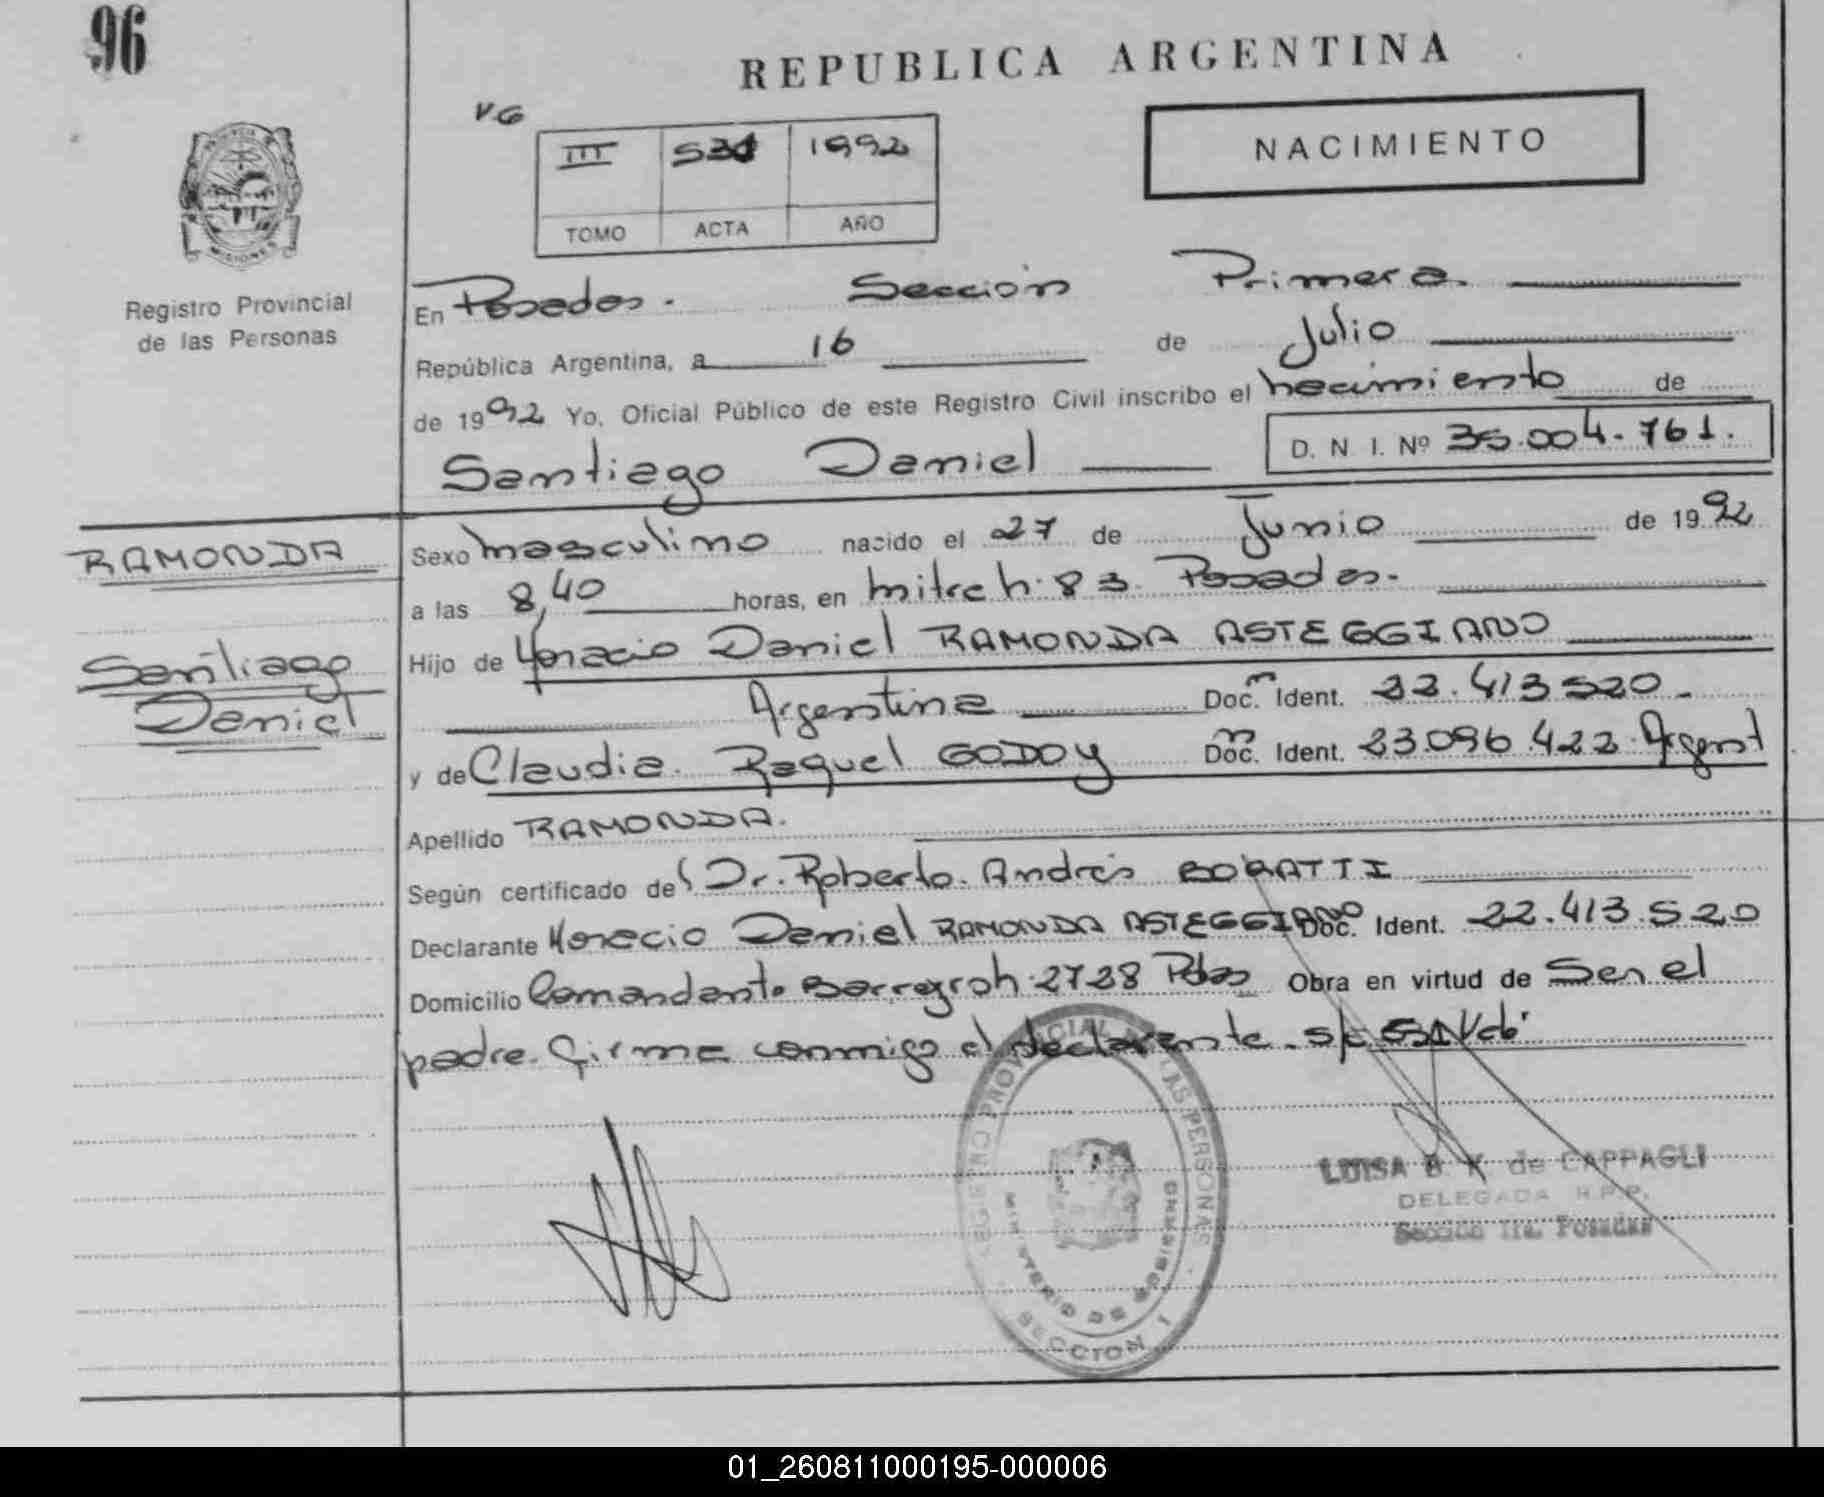 96
REPUBLICA ARGENTINA
V.G
NACIMIENTO
III 1992
TOMO ACTA AÑO
PROVINCIA DE MISIONES
Registro Provincial
de las Personas
En Posadas. Sección Primera.
República Argentina, a 16 de Julio
de 1992 Yo, Oficial Público de este Registro Civil inscribo el nacimiento de
Santiago Daniel D. N. I. Nº 35.004.761.
RAMONDA
Santiago
Daniel
Sexo masculino nacido el 27 de Junio de 1992
a las 8,40 horas, en mitre h. 83 Posadas.
Hijo de Horacio Daniel RAMONDA ASTEGGIANO
Argentina Doc. Ident. 22.413.520.
y de Claudia Raquel GODOY Doc. Ident. 23.096.422 Argent
Apellido RAMONDA.
Según certificado del Dr. Roberto Andrés
Declarante Horacio Daniel RAMONDA ASTEGGIANO Doc. Ident. 22.413.520
Domicilio Comandante 2728 Pdas Obra en virtud de Ser el
padre. Firma conmigo el declarante.
REGISTRO PROVINCIAL DE LAS PERSONAS
MINISTERIO DE GOBIERNO
SECCION 1
LUISA B K de CAPPAGLI
DELEGADA R.P.P.
Sección 1ra. Posadas
01_260811000195-000006